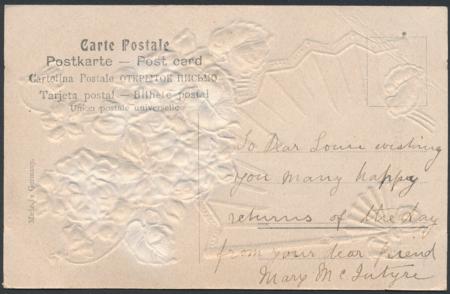 Carte Postale
Postkarte — Post card
Cartolina Postale ОТКРЫТОЕ ПИСЬМО
Tarjeta postal — Bilhete postal
Union postale universelle
Germany.
To Dear Louie wishing
you many happy
returns of the day
from your dear friend
Mary McIntyre